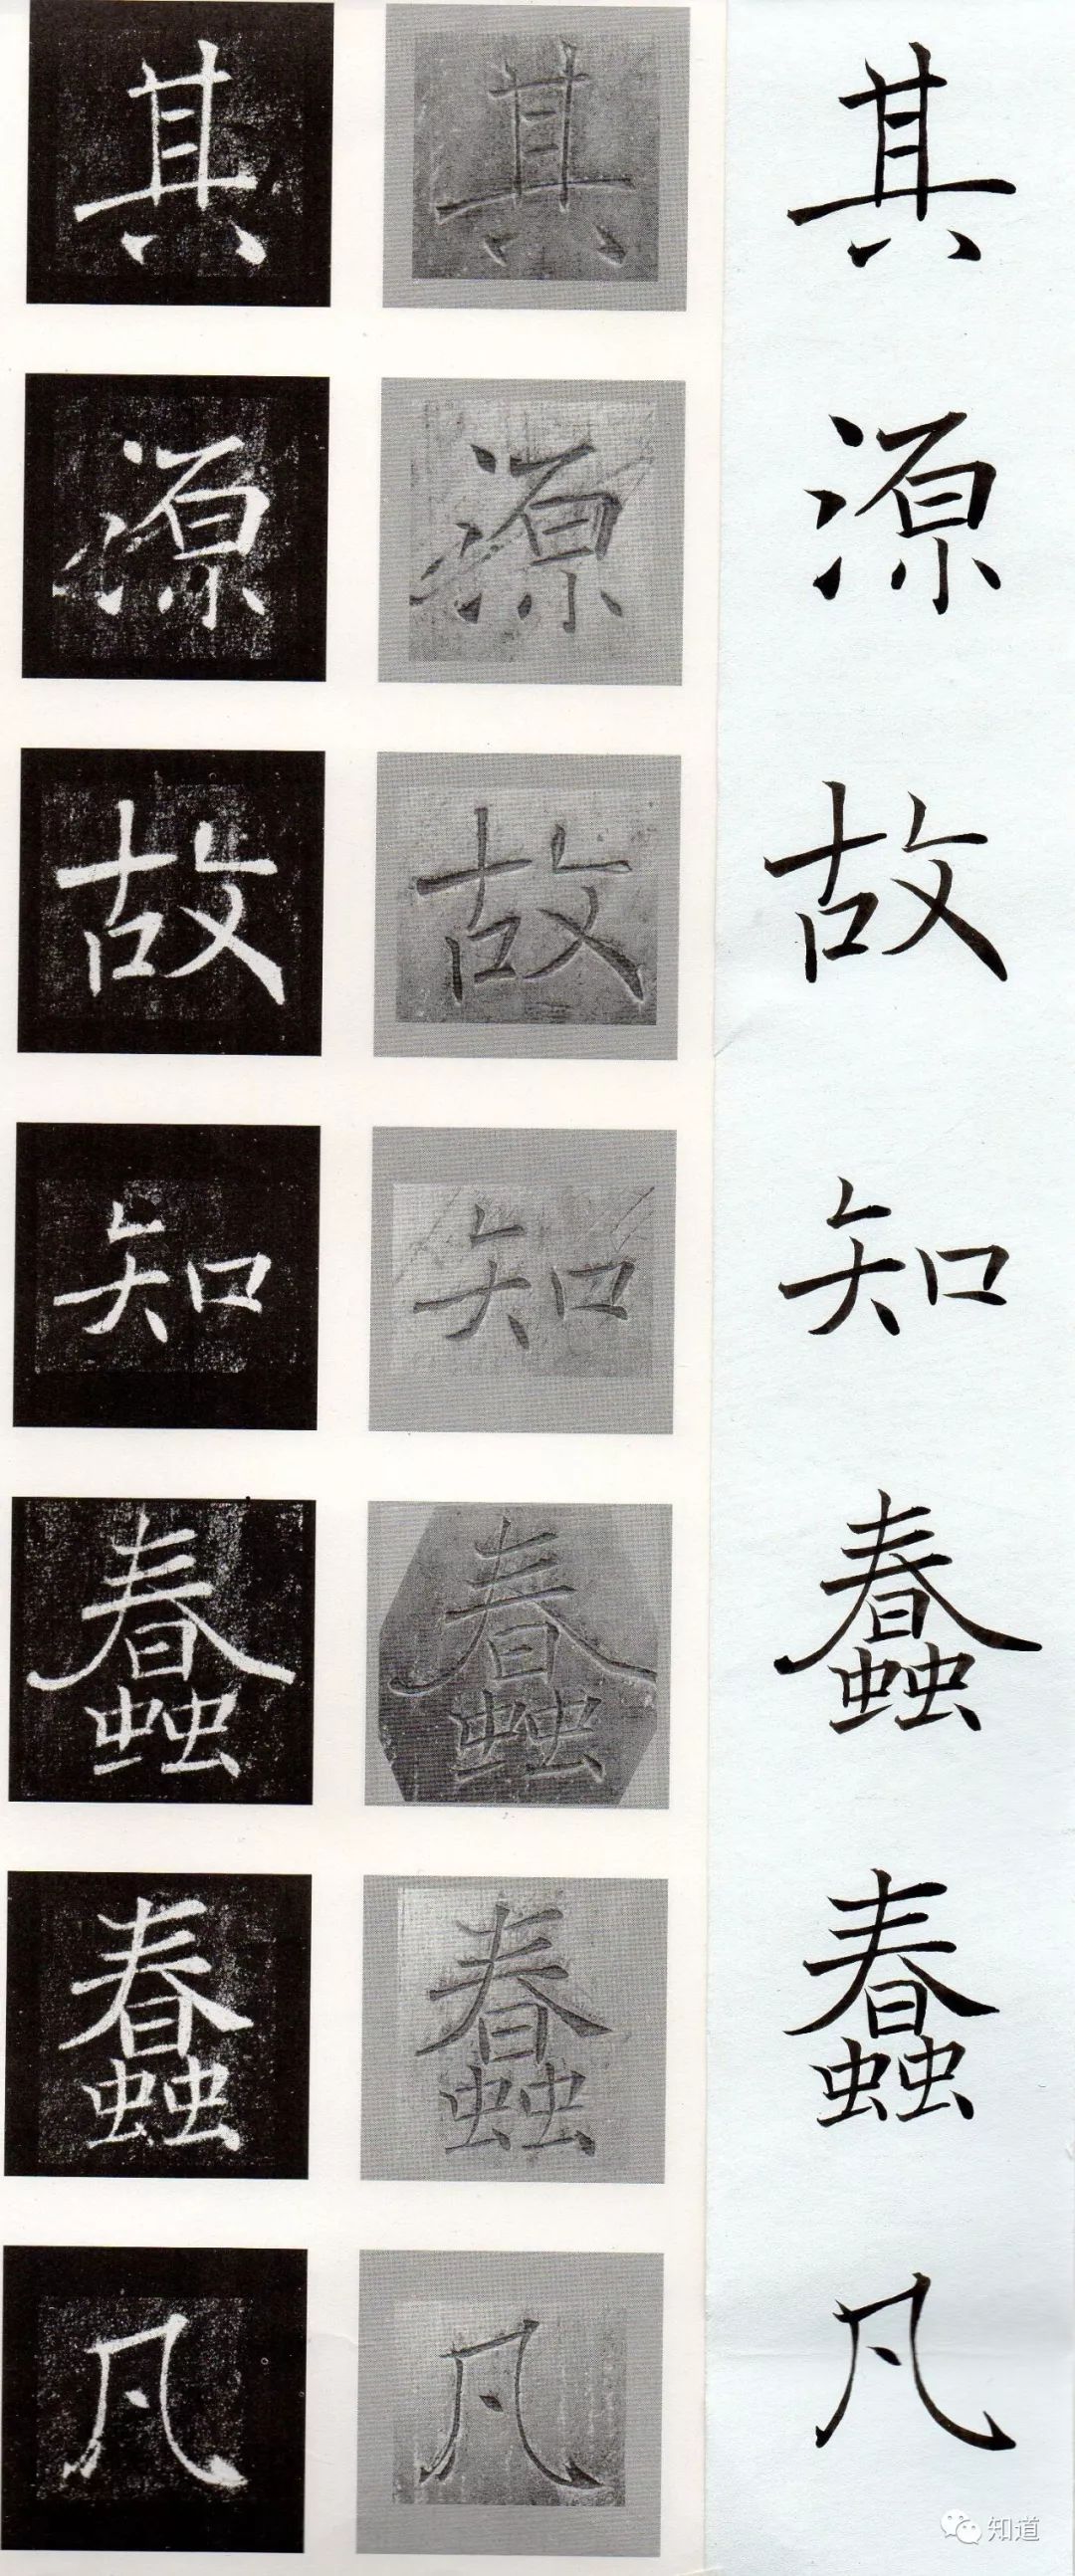 其 其 其
源 源 源
故 故 故
知 知 知
蠢 蠢 蠢
蠢 蠢 蠢
凡 凡 凡
知道